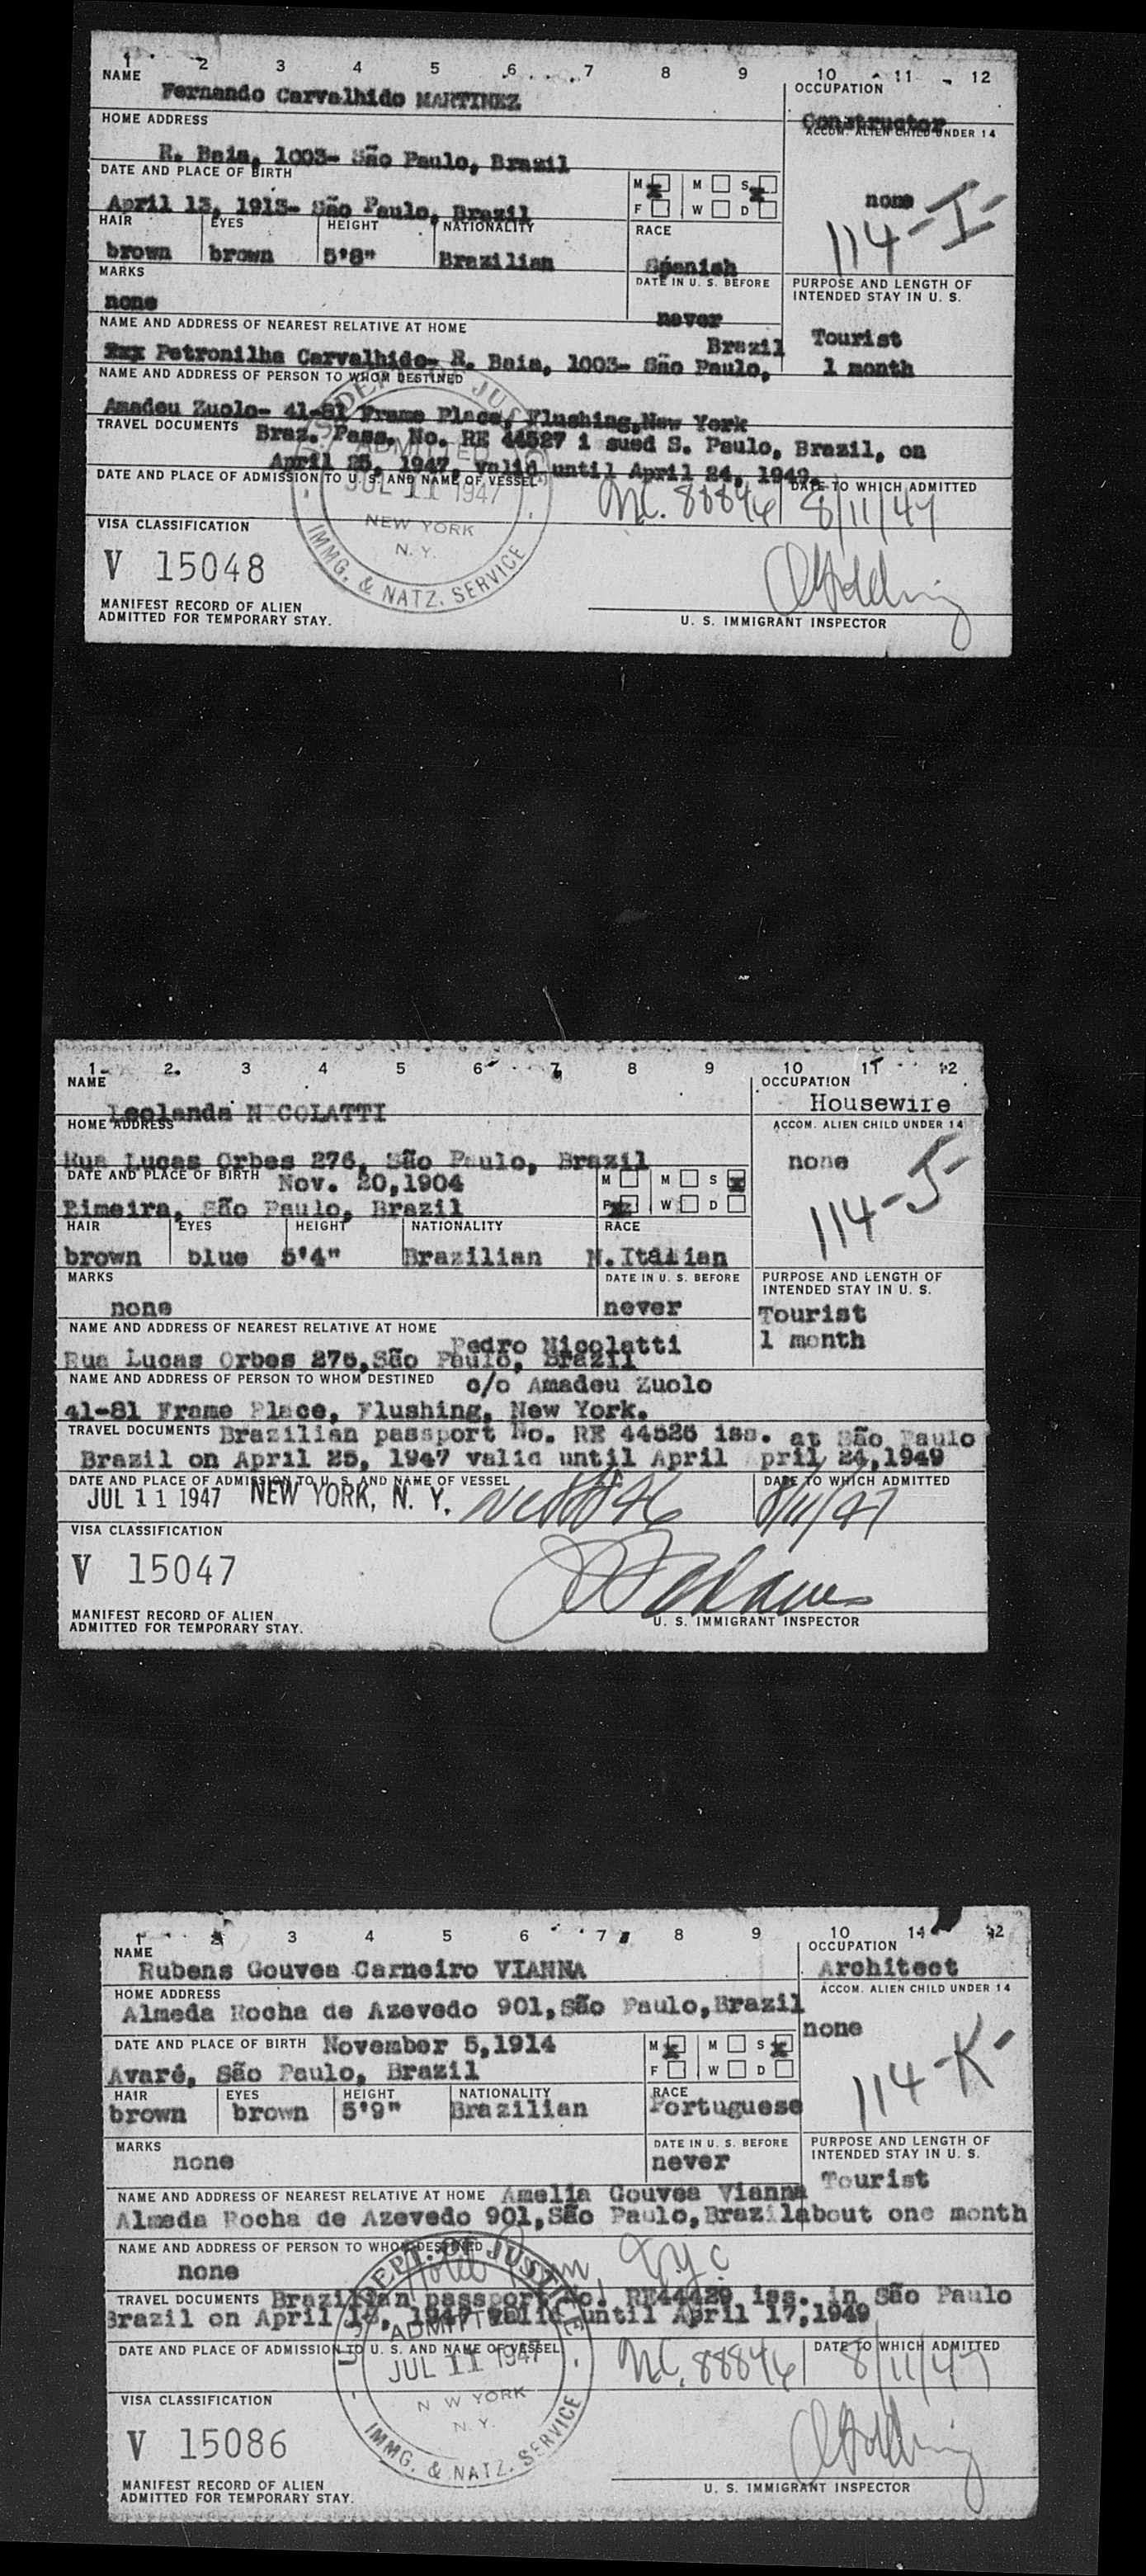 1 2 3 4 5 6 7 8 9 10 11 12
NAME
Fernando Carvalhido MARTINEZ
OCCUPATION
Constructor
HOME ADDRESS
ACCOM. ALIEN CHILD UNDER 14
R. Baia, 1003- São Paulo, Brazil
none
DATE AND PLACE OF BIRTH
M M S
April 13, 1913- São Paulo, Brazil
F W D
114-I-
HAIR EYES HEIGHT NATIONALITY RACE
brown brown 5'8" Brazilian Spanish
MARKS DATE IN U. S. BEFORE
PURPOSE AND LENGTH OF
INTENDED STAY IN U. S.
none never
NAME AND ADDRESS OF NEAREST RELATIVE AT HOME
Tourist
Brazil
Petronilha Carvalhido- R. Baia, 1003- São Paulo,
1 month
NAME AND ADDRESS OF PERSON TO WHOM DESTINED
Amadeu Zuolo- 41-81 Frame Place, Flushing, New York
TRAVEL DOCUMENTS Braz. Pass. No. RE 44527 i sued S. Paulo, Brazil, on
April 25, 1947, valid until April 24, 1949.
DATE AND PLACE OF ADMISSION TO U. S. AND NAME OF VESSEL DATE TO WHICH ADMITTED
ADMITTED
JUL 11 1947
NEW YORK
N. Y.
IMMG. & NATZ. SERVICE
NC. 88896 8/11/47
VISA CLASSIFICATION
V 15048
MANIFEST RECORD OF ALIEN
ADMITTED FOR TEMPORARY STAY.
U. S. IMMIGRANT INSPECTOR
1 2 3 4 5 6 7 8 9 10 11 12
NAME
Leolanda NICOLATTI
OCCUPATION
Housewire
HOME ADDRESS
ACCOM. ALIEN CHILD UNDER 14
Rua Lucas Orbes 276, São Paulo, Brazil
none
DATE AND PLACE OF BIRTH Nov. 20,1904
M M S
Rimeira, São Paulo, Brazil
F W D
114-J-
HAIR EYES HEIGHT NATIONALITY RACE
brown blue 5'4" Brazilian N.Italian
MARKS DATE IN U. S. BEFORE
PURPOSE AND LENGTH OF
INTENDED STAY IN U. S.
none never
Tourist
1 month
NAME AND ADDRESS OF NEAREST RELATIVE AT HOME
Pedro Nicolatti
Rua Lucas Orbes 276,São Paulo, Brazil
NAME AND ADDRESS OF PERSON TO WHOM DESTINED c/o Amadeu Zuolo
41-81 Frame Place, Flushing, New York.
TRAVEL DOCUMENTS Brazilian passport No. RE 44526 iss. at São Paulo
Brazil on April 25, 1947 valid until April pril 24,1949
DATE AND PLACE OF ADMISSION TO U. S. AND NAME OF VESSEL DATE TO WHICH ADMITTED
JUL 11 1947 NEW YORK, N. Y. NC 88896 8/11/47
VISA CLASSIFICATION
V 15047
MANIFEST RECORD OF ALIEN
ADMITTED FOR TEMPORARY STAY.
U. S. IMMIGRANT INSPECTOR
1 2 3 4 5 6 7 8 9 10 11 12
NAME
Rubens Gouvea Carneiro VIANNA
OCCUPATION
Architect
HOME ADDRESS
ACCOM. ALIEN CHILD UNDER 14
Almeda Rocha de Azevedo 901,São Paulo,Brazil
none
DATE AND PLACE OF BIRTH November 5,1914
M M S
Avaré, São Paulo, Brazil
F W D
114-K-
HAIR EYES HEIGHT NATIONALITY RACE
brown brown 5'9" Brazilian Portuguese
MARKS DATE IN U. S. BEFORE
PURPOSE AND LENGTH OF
INTENDED STAY IN U. S.
none never
Tourist
NAME AND ADDRESS OF NEAREST RELATIVE AT HOME Amelia Gouvea Vianna
Almeda Rocha de Azevedo 901,São Paulo,Brazil about one month
NAME AND ADDRESS OF PERSON TO WHOM DESTINED
none Hotel N.Y.C
TRAVEL DOCUMENTS Brazilian passport No. RE44429 iss. in São Paulo
Brazil on April 18, 1947 valid until April 17,1949
DATE AND PLACE OF ADMISSION TO U. S. AND NAME OF VESSEL DATE TO WHICH ADMITTED
DEPT. OF JUSTICE
ADMITTED
JUL 11 1947
N W YORK
N. Y.
IMMG. & NATZ. SERVICE
NC. 88896 8/11/47
VISA CLASSIFICATION
V 15086
MANIFEST RECORD OF ALIEN
ADMITTED FOR TEMPORARY STAY.
U. S. IMMIGRANT INSPECTOR